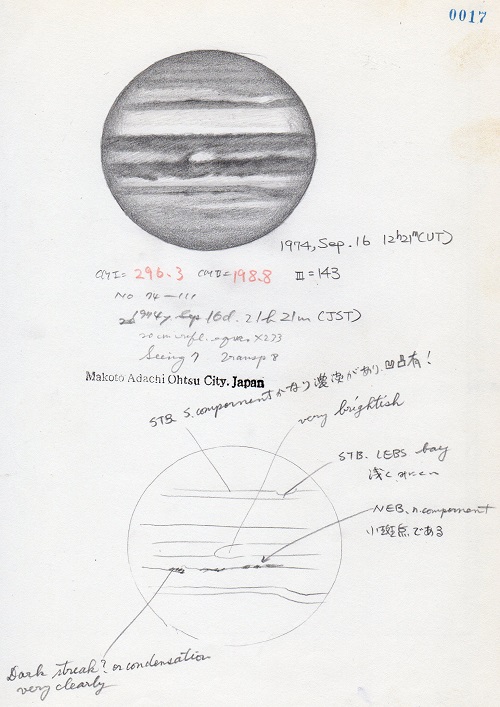 0017
1974, Sep. 16 12h21m(UT)
ωI= 296.3 ωII= 198.8 III=143
No 74-111
16d. 21h21m (JST)
20cm refl. ×233
Seeing 7 Transp 8
Makoto Adachi Ohtsu City. Japan
STB. S. compornent かなり濃淡があり.凹凸有!
very brightish
STB. LEBS bay
浅く
NEB. n. compornent
小斑点である
Dark streak? or condensation
very clearly